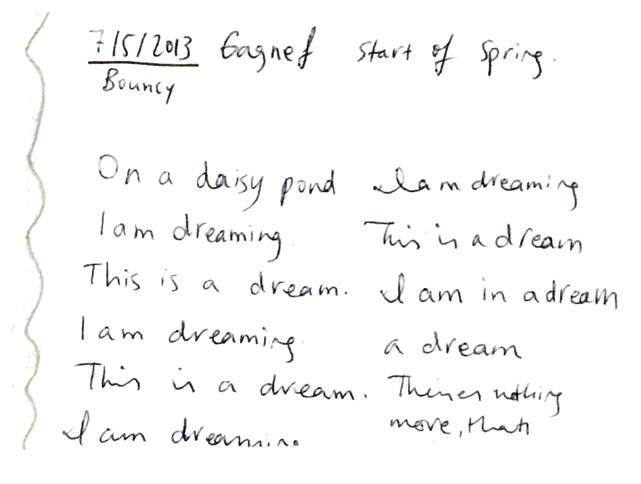 7/5/2013 Gagnef start of Spring.
Bouncy
On a daisy pond
I am dreaming
This is a dream.
I am dreaming
This is a dream.
I am dreaming
I am dreaming
This is a dream
I am in a dream
a dream
Theres nothing
more,